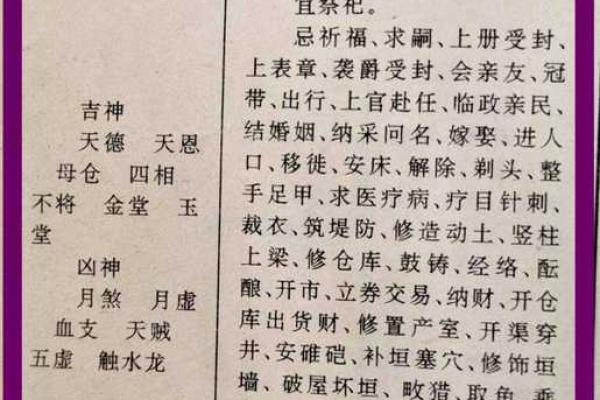 吉神
天德 天恩
母仓 四相
不将 金堂 玉
堂
凶神
月煞 月虚
血支 天贼
五虚 触水龙
宜祭祀。
忌祈福、求嗣、上册受封、
上表章、袭爵受封、会亲友、冠
带、出行、上官赴任、临政亲民、
结婚姻、纳采问名、嫁娶、进人
口、移徙、安床、解除、剃头、整
手足甲、求医疗病、疗目针刺、
裁衣、筑堤防、修造动土、竖柱
上梁、修仓库、鼓铸、经络、酝
酿、开市、立券交易、纳财、开仓
库出货财、修置产室、开渠穿
井、安碓硙、补垣塞穴、修饰垣
墙、破屋坏垣、畋猎、取鱼、乘